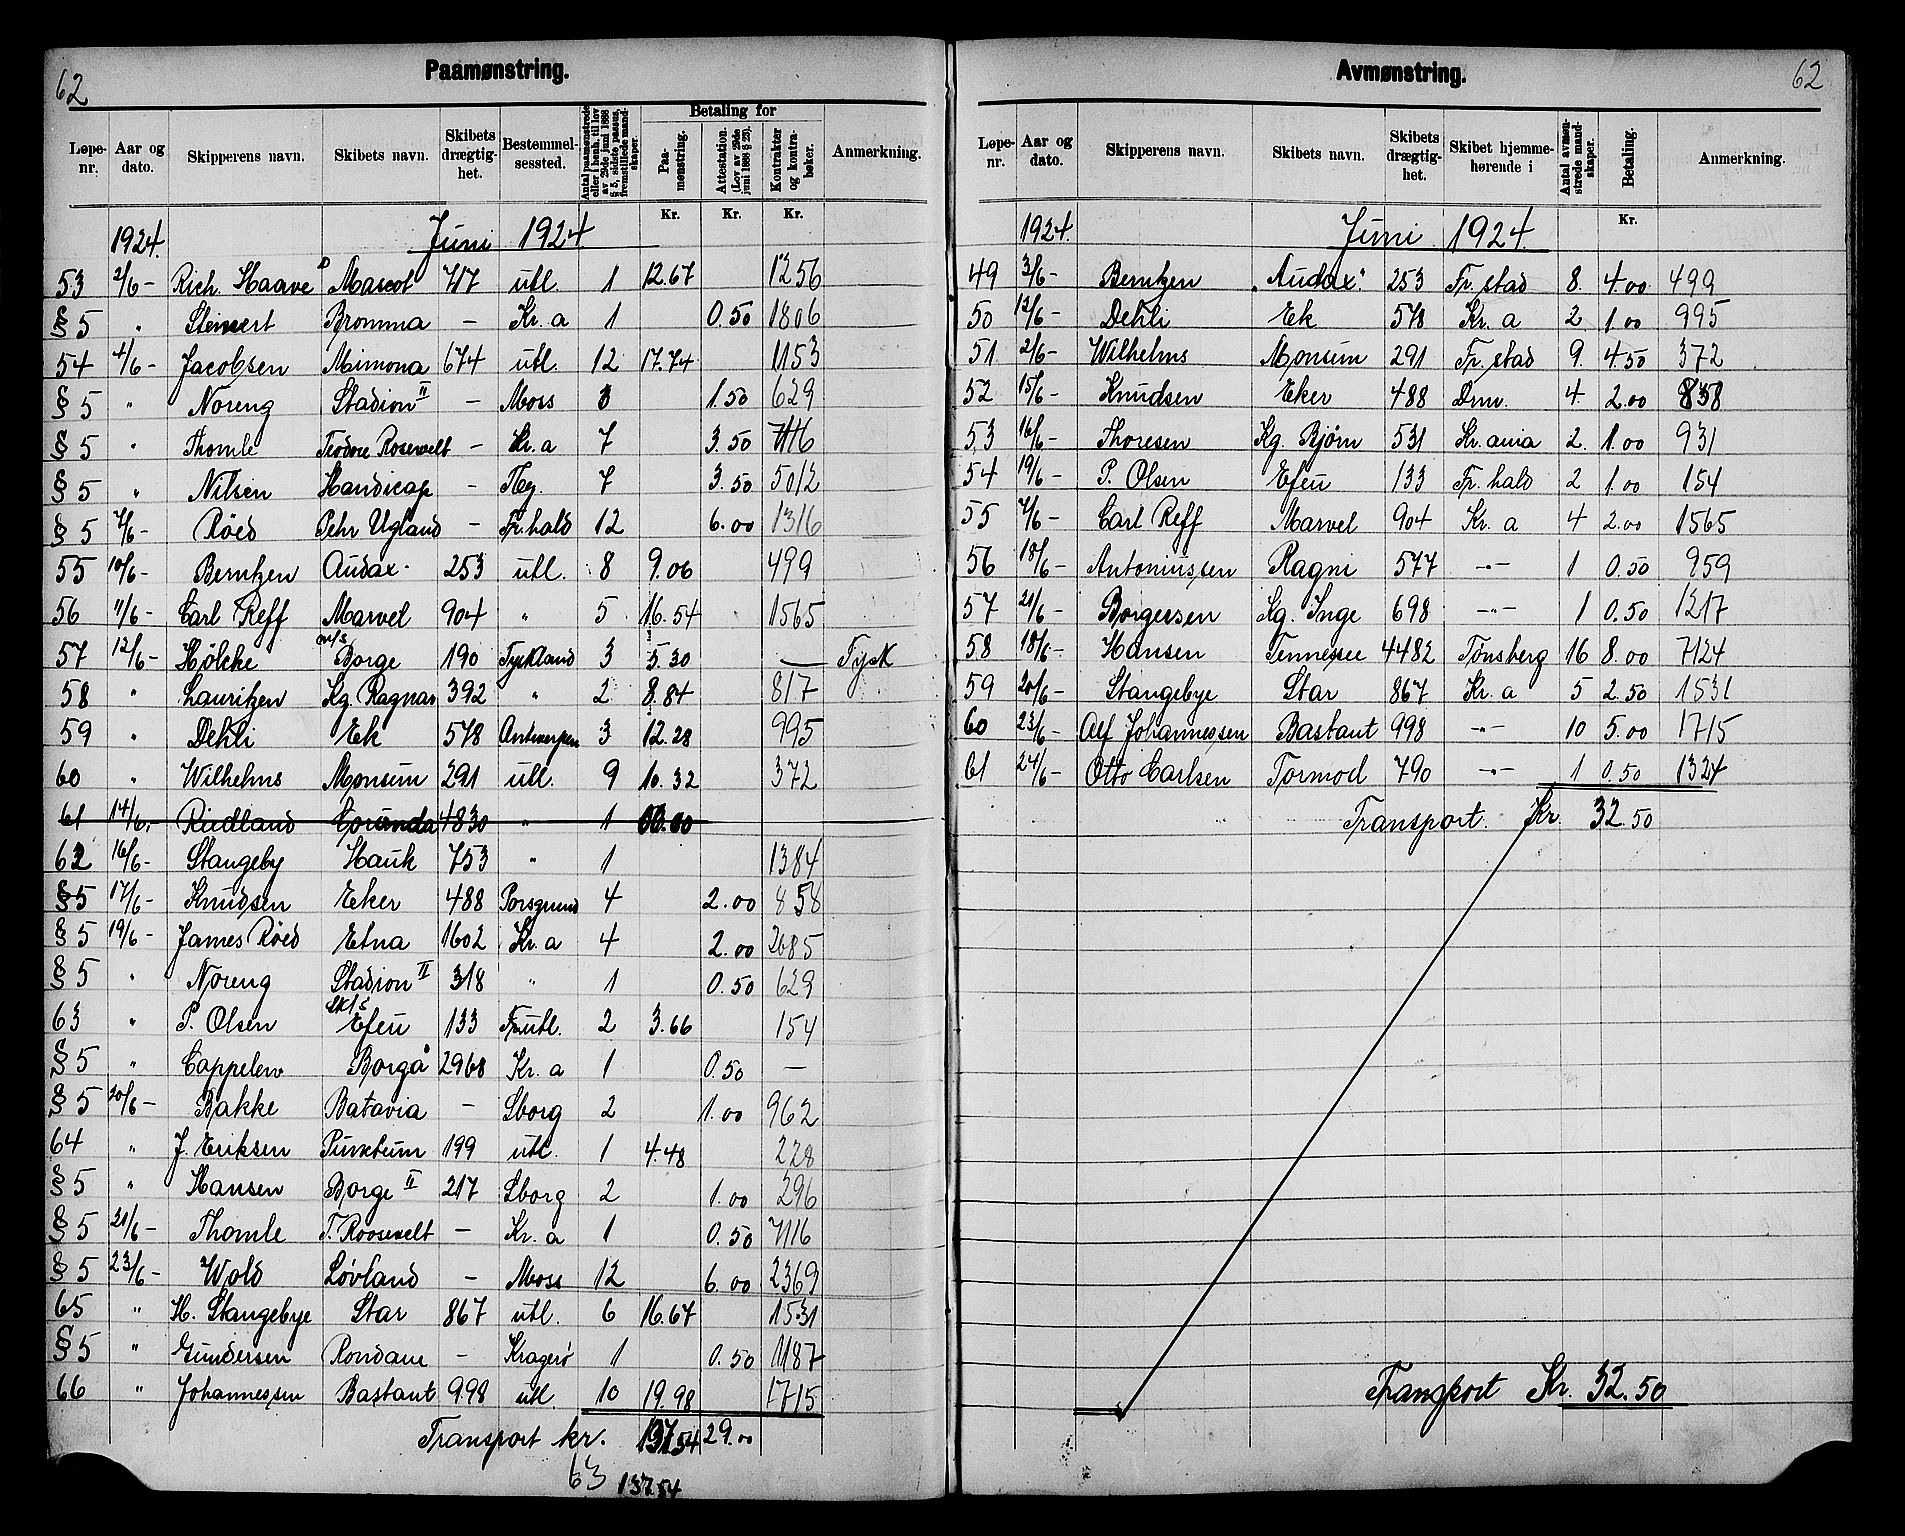 62
Paamønstring.
Løpe-nr. Aar og dato. Skipperens navn. Skibets navn. Skibets drægtighet. Bestemmelsessted. Antal paamønstrede eller i henh. til lov av 29de juni 1888 § 5, sidste passus, fremstillede mandskaper. Betaling for Paamønstring. Attestation. (Lov av 29de juni 1888 § 25). Kontrakter og kontrabøker. Anmerkning.
Kr. Kr. Kr.
1924. Juni 1924
53 2/6- Rich. Haave Mascot 717 utl. 1 12.67 1256
§ 5 " Steinert Bromma - Kr. a 1 0.50 1806
54 4/6- Jacobsen Mimona 674 utl. 12 17.74 1153
§ 5 " Noreng Stadion II - Moss 3 1.50 629
§ 5 " Thomle Teodore Rosevelt - Kr. a 7 3.50 7116
§ 5 " Nilsen Handicap - Tbg. 7 3.50 5012
§ 5 7/6- Røed Pehr Ugland - Fr.hald 12 6.00 1316
55 10/6- Berntzen Audax. 253 utl. 8 9.06 499
56 11/6- Carl Reff Marvel 904 " 5 16.54 1565
57 12/6- Hölcke m/s Borge 190 Tyskland 3 5.30 — Tysk
58 " Lauritzen Kg. Ragnar 392 " 2 8.84 817
59 " Dehli Ek 578 Antwerpen 3 12.28 995
60 " Wilhelms Monsum 291 utl. 9 10.32 372
61 14/6- Riedland Corunda 4830 " 1 00.00
62 16/6- Stangeby Hauk 753 " 1 1384
§ 5 17/6- Knudsen Eker 488 Porsgrund 4 2.00 858
§ 5 19/6- James Røed Etna 1602 Kr. a 4 2.00 2685
§ 5 " Noreng Stadion II 318 " 1 0.50 629
63 " P. Olsen Efeu 133 utl. 2 3.66 154
§ 5 " Cappelen Borgå 2968 Kr. a 1 0.50 —
§ 5 20/6- Bakke Batavia - Sborg 2 1.00 962
64 " J. Eriksen Punktum 199 utl. 1 4.48 228
§ 5 " Hansen Borge II 217 Sborg 2 1.00 296
§ 5 21/6- Thomle T. Roosevelt - Kr. a 1 0.50 7116
§ 5 23/6- Wold Løvland - Moss 12 6.00 2369
65 " H. Stangebye Star 867 utl. 6 16.67 1531
§ 5 " Gundersen Rondane - Kragerø 1 0.50 1187
66 " Johannessen Bastant 998 utl. 10 19.98 1715
Transport kr. 137.54 29.00
63 137.54
Avmønstring.
62
Løpe-nr. Aar og dato. Skipperens navn. Skibets navn. Skibets drægtighet. Skibet hjemmehørende i Antal avmønstrede mandskaper. Betaling. Anmerkning.
Kr.
1924. Juni 1924.
49 3/6- Berntzen "Audax" 253 Fr. stad 8. 4.00 499
50 12/6- Dehli Ek 578 Kr. a 2 1.00 995
51 2/6- Wilhelms Monsum 291 Fr. stad 9. 4.50 372
52 15/6- Knudsen Eker 488 Drm. 4. 2.00 858
53 16/6- Thoresen Kg. Bjørn 531 Kr.ania 2. 1.00 931
54 19/6- P. Olsen Efeu 133 Fr. hald 2 1.00 154
55 7/6- Carl Reff Marvel 904 Kr. a 4 2.00 1565
56 18/6- Antoniussen Ragni 577 -"- 1 0.50 959
57 21/6- Borgersen Kg. Inge 698 -"- 1 0.50 1217
58 18/6- Hansen Tennessee 4482 Tønsberg 16 8.00 7124
59 20/6- Stangebye Star 867 Kr. a 5 2.50 1531
60 23/6- Alf Johannessen Bastant 998 -"- 10 5.00 1715
61 24/6- Otto Carlsen Tormod 790 -"- 1 0.50 1324
Transport. Kr. 32.50
Transport Kr. 32.50